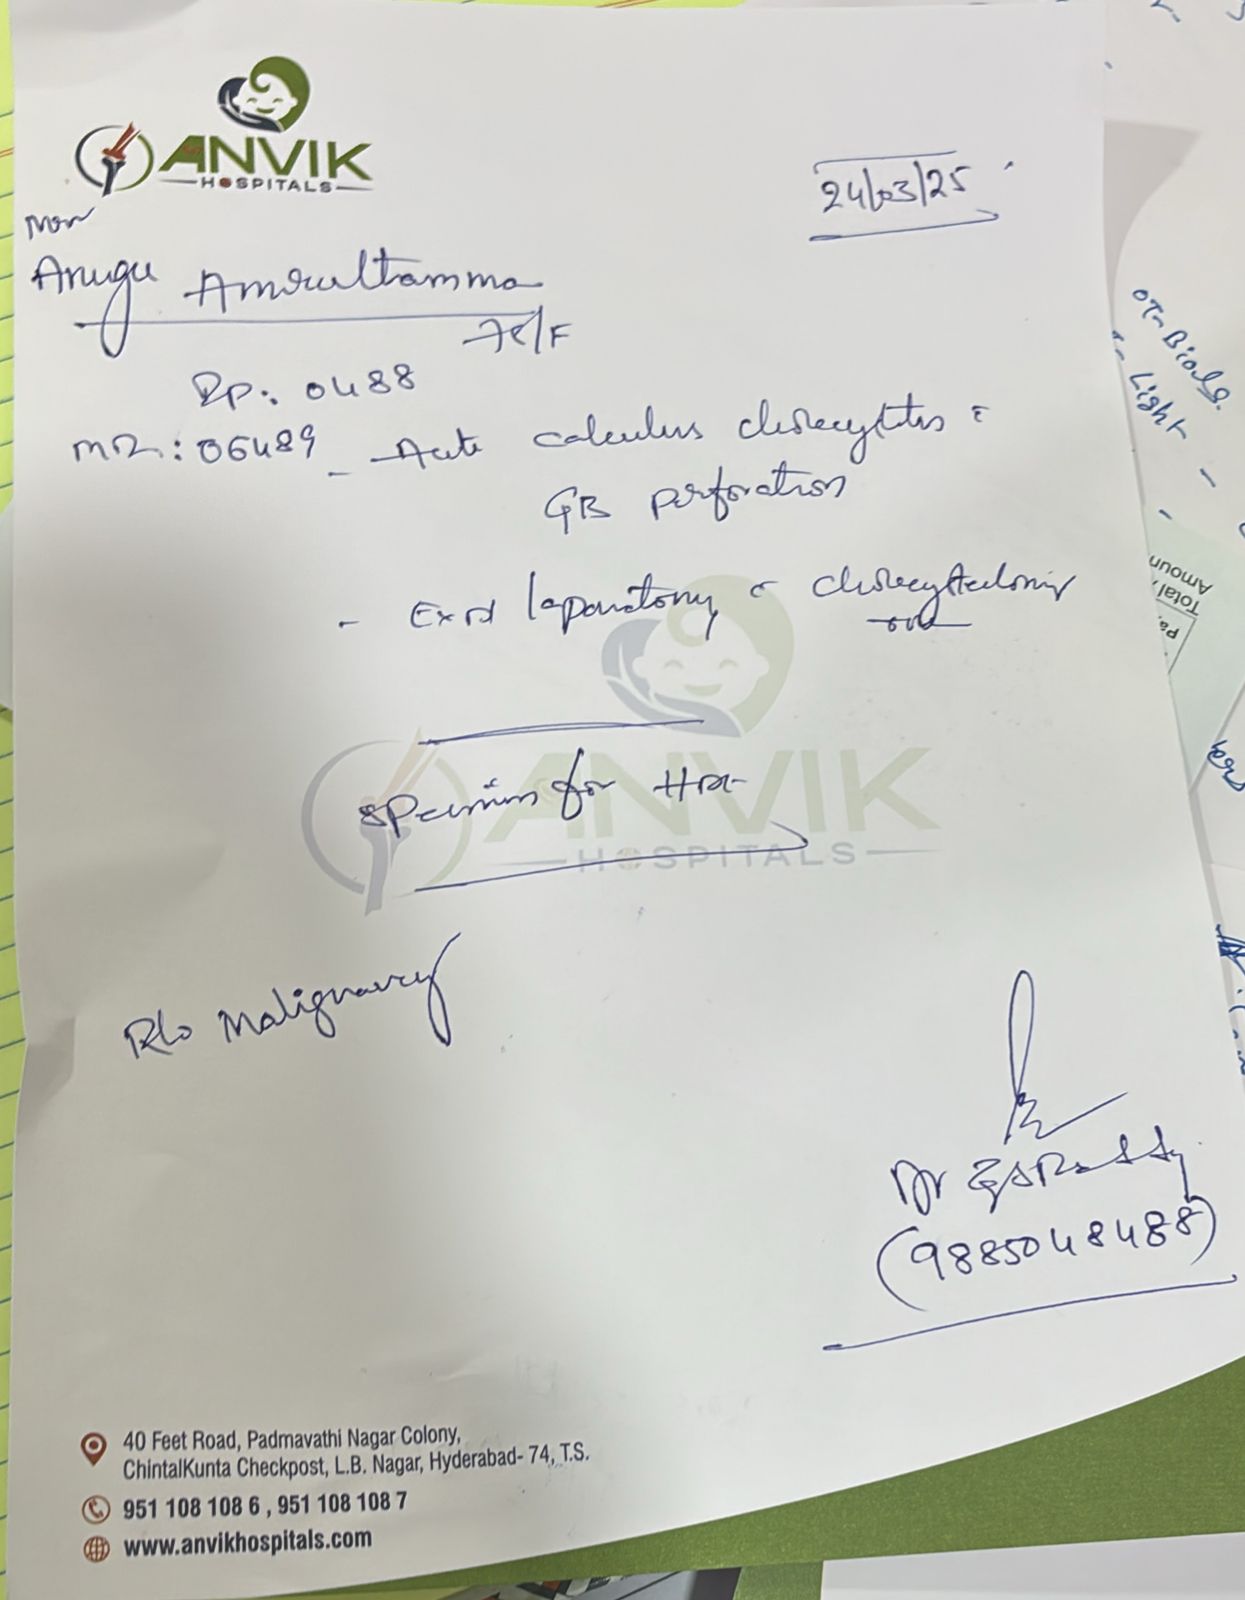 ANVIK
HOSPITALS
24/03/25
Arugu Amruttamma
/F
Rp: 0488
MR: 06489 - Acute calculus cholecystitis c
GB perforation
- Expl laparotomy c cholecystectomy
specimen for HPE
ANVIK
HOSPITALS
R/o Malignancy
Dr GS Reddy
(9885048488)
40 Feet Road, Padmavathi Nagar Colony,
ChintalKunta Checkpost, L.B. Nagar, Hyderabad- 74, T.S.
951 108 108 6 , 951 108 108 7
www.anvikhospitals.com
Light
Amoun
Total